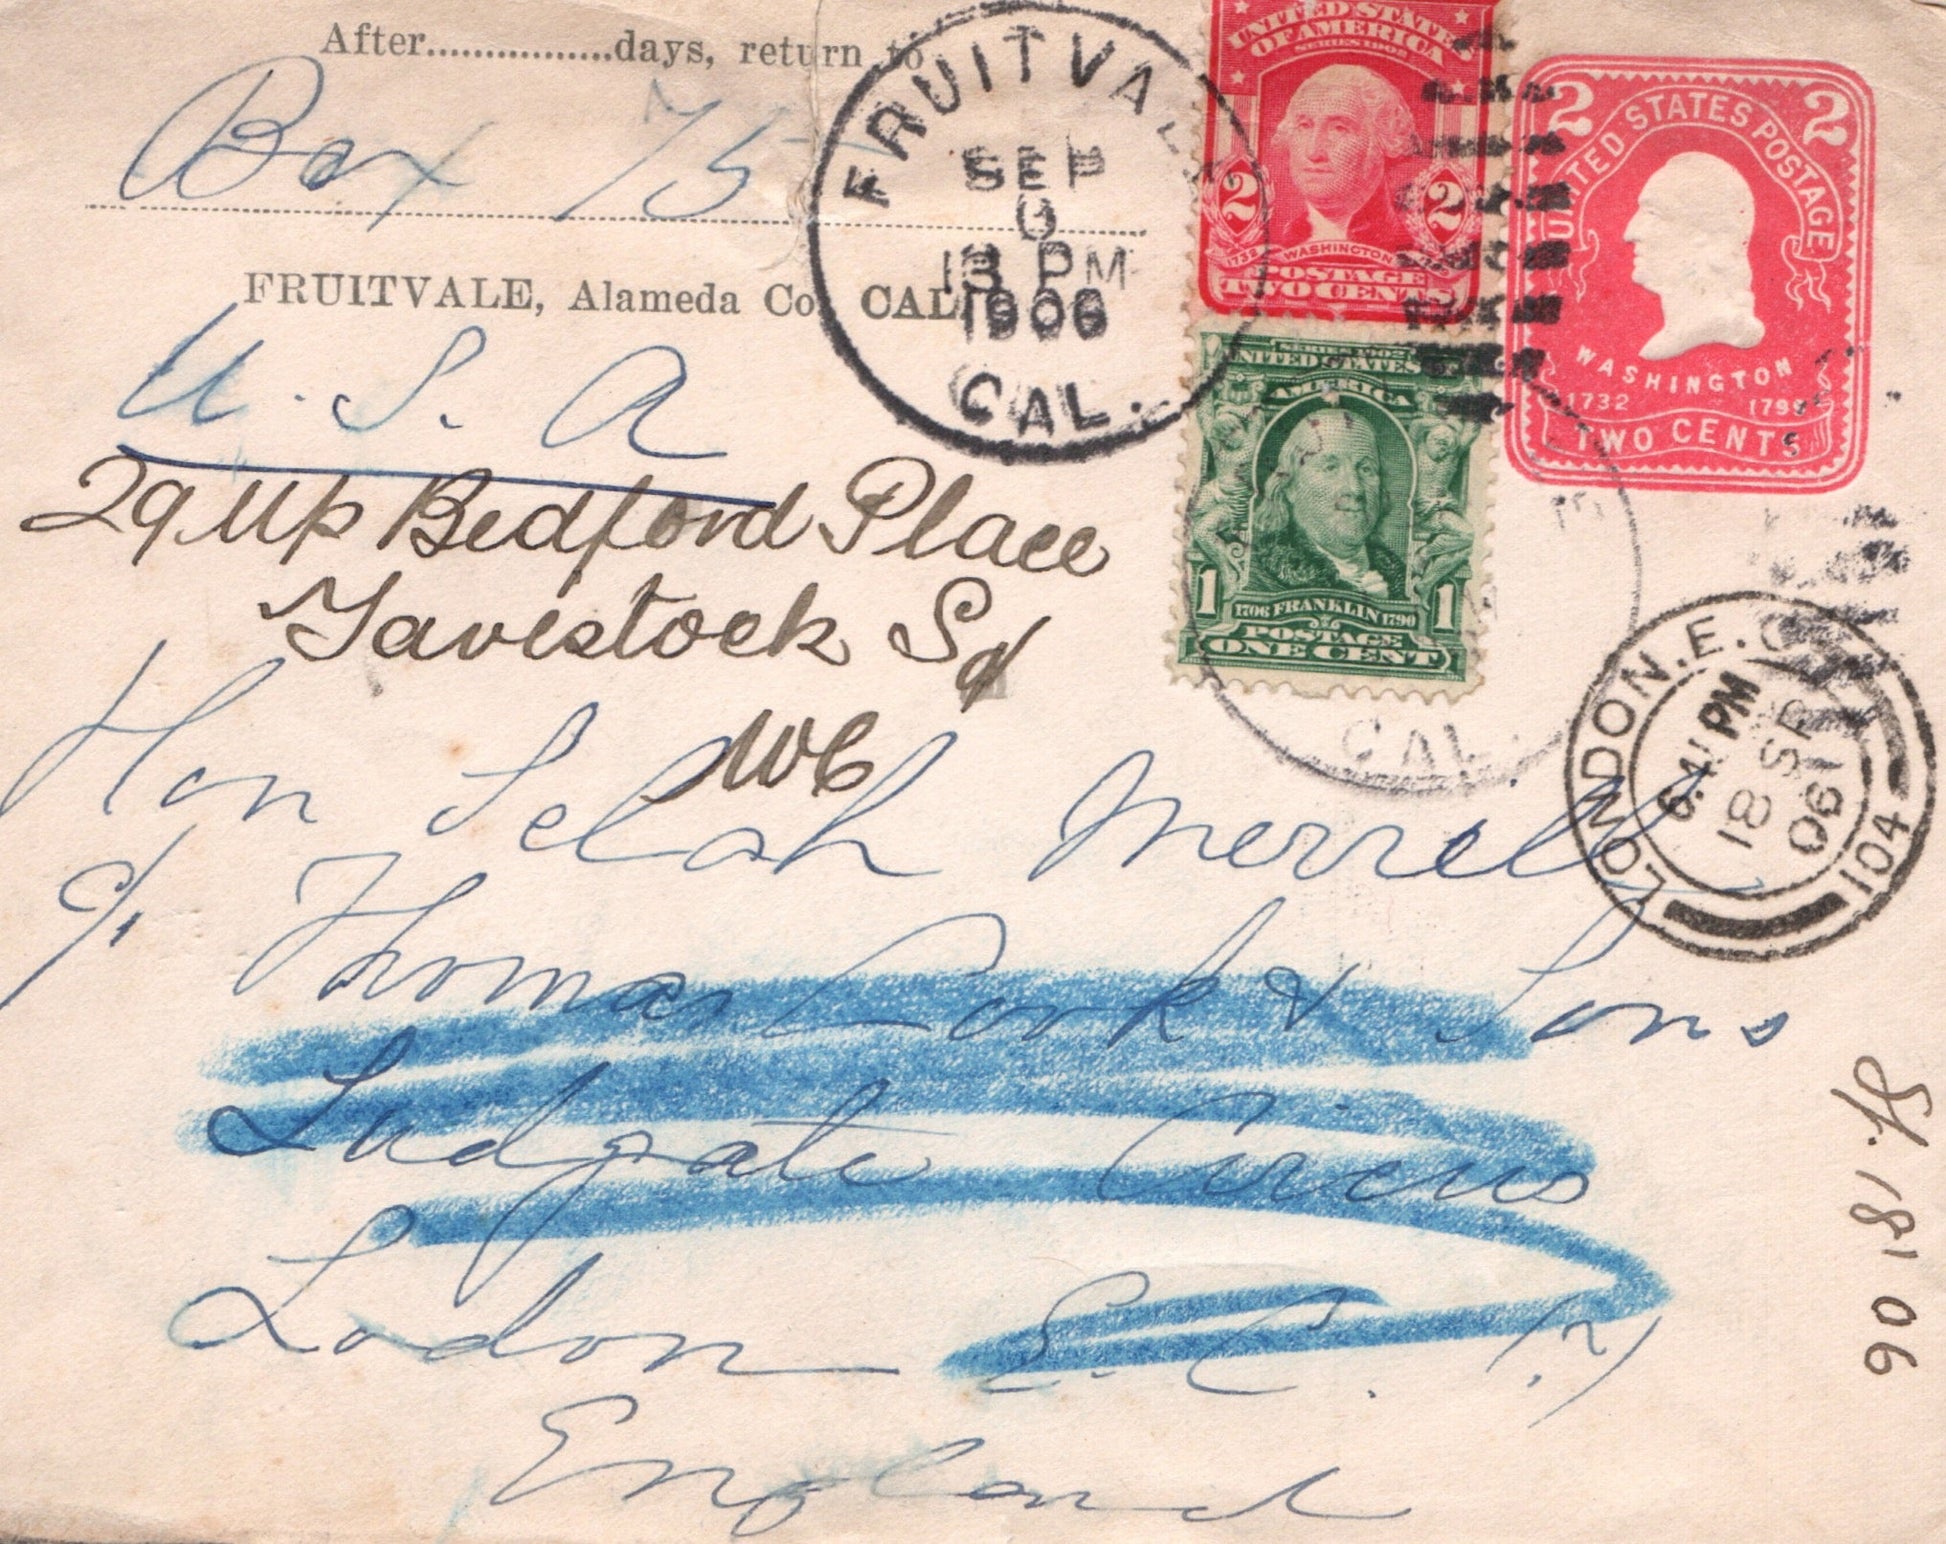 After................days, return to
Box 75
FRUITVALE, Alameda Co. CAL.
U. S. A
FRUITVALE
SEP
1906
CAL.
UNITED STATES
OF AMERICA
SERIES 1902
2 2
1732 WASHINGTON
POSTAGE
TWO CENTS
SERIES 1902
UNITED STATES
AMERICA
1 1
1706 FRANKLIN 1790
POSTAGE
ONE CENT
2 2
UNITED STATES POSTAGE
WASHINGTON
1732 1799
TWO CENTS
29 Up Bedford Place
Tavistock Sq
WC
CAL.
LONDON. E.C
PM
18 SP
06
104
Hon Selah Merrill
c/o Thomas Cook & Sons
Ludgate Circus
London E. C.
England
18 06